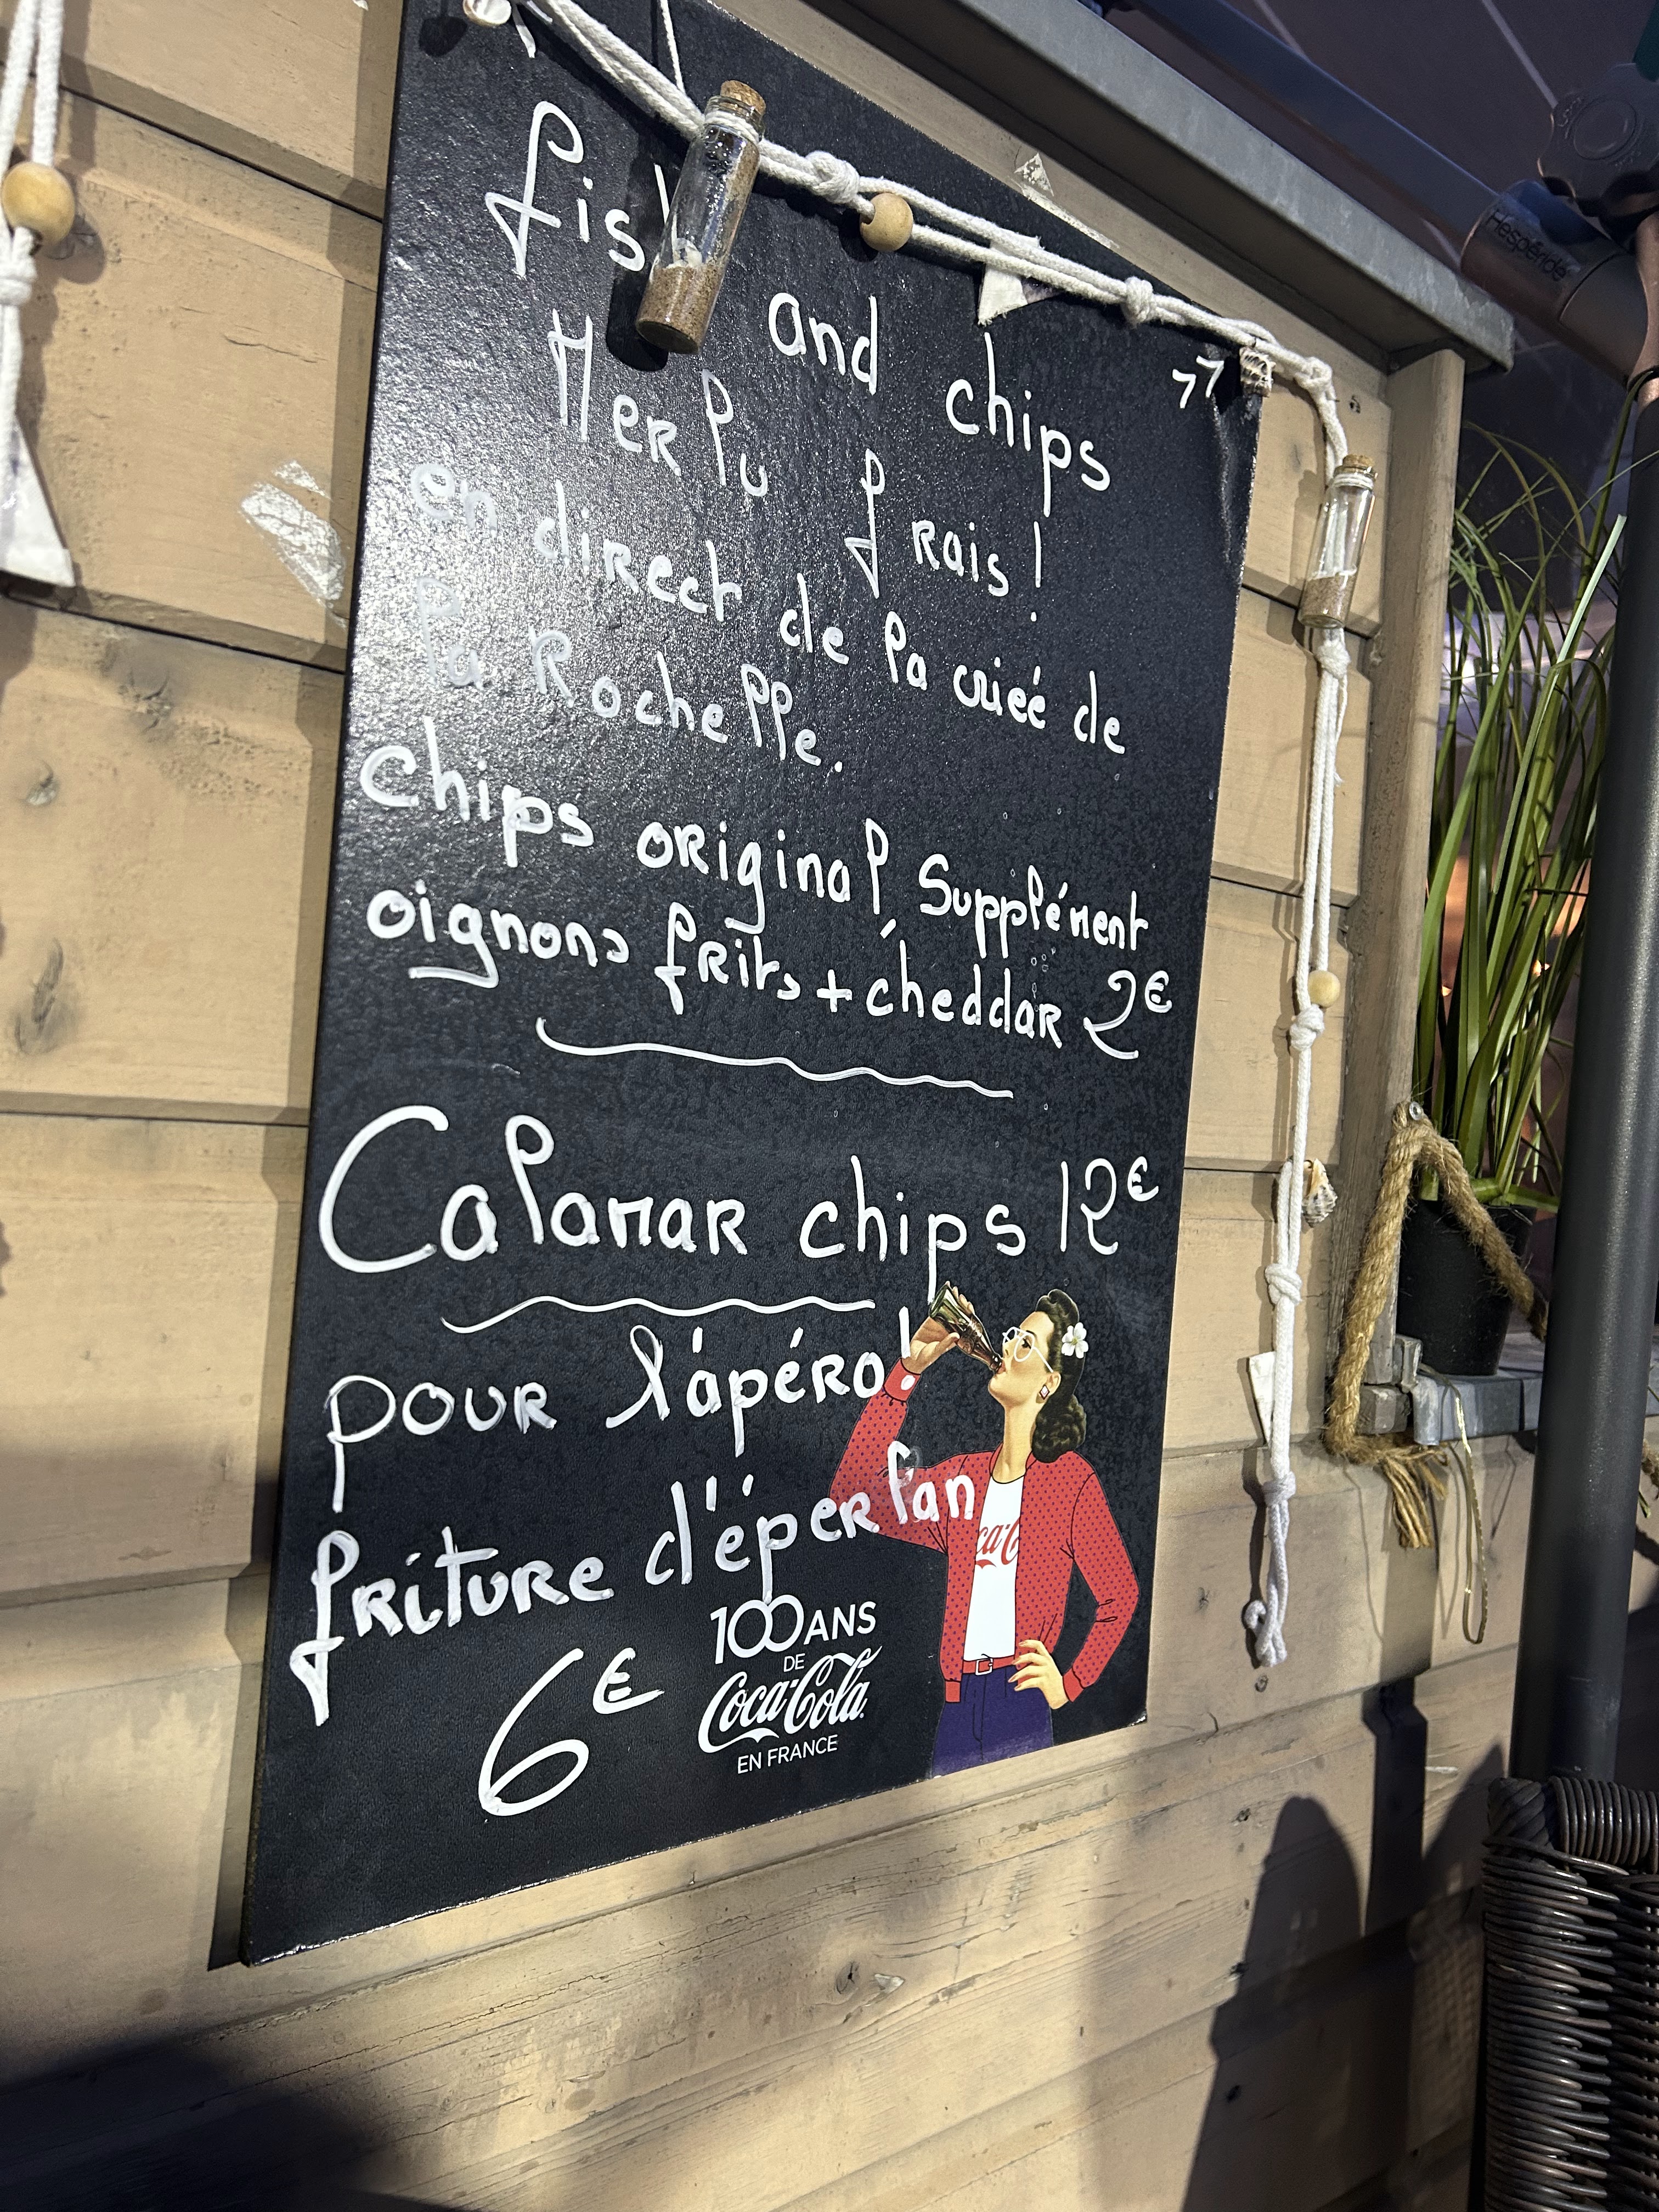 fish
and chips
Merlu frais!
en direct de la criée de
la Rochelle.
chips original Supplément
oignons frits + cheddar 2€
Calamar chips 12€
pour l'apéro!
friture d'éperlan
6€
100 ANS
DE
Coca-Cola
EN FRANCE
Hespéride